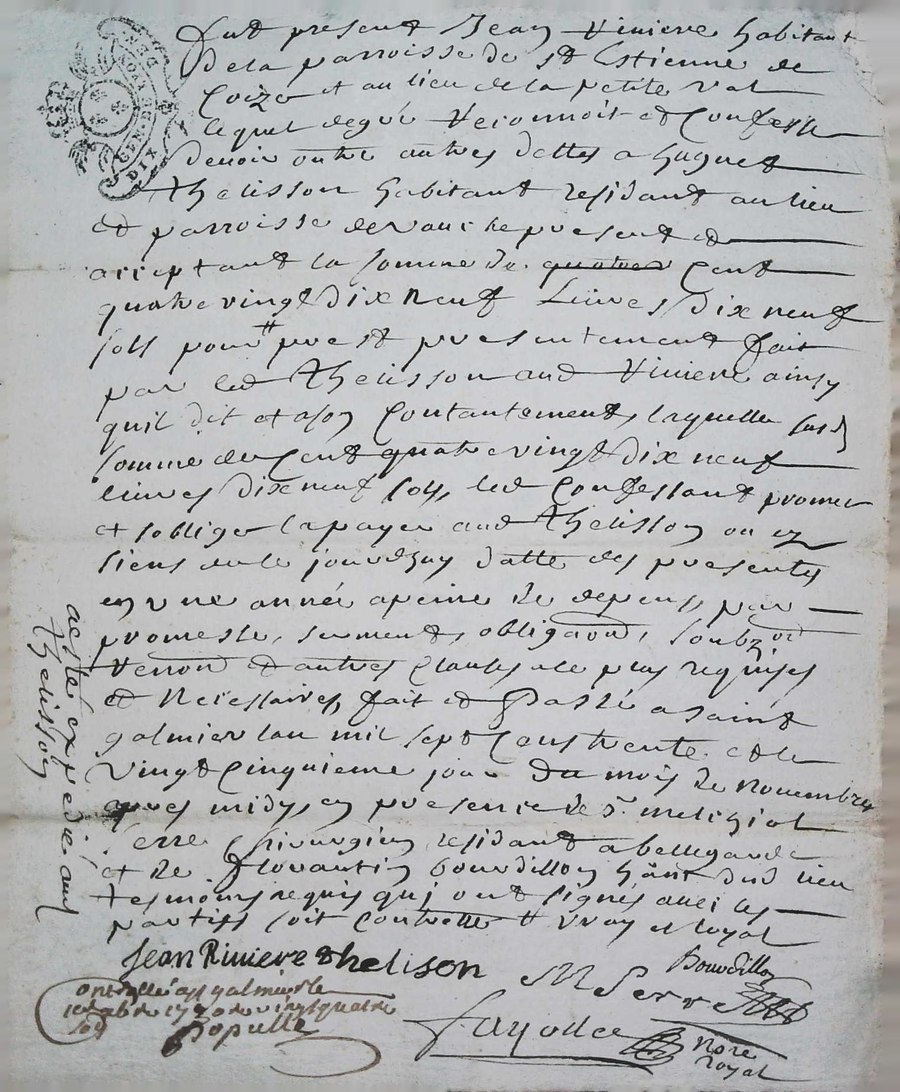 GEN. DE LYON
DIX DEN.
fut present Jean Riviere habitant
de la parroisse de St Estienne de
Coize et au lieu de la petite val
lequel de gré Reconnoit et Confesse
devoir outre autres dettes a huguet
Thelisson habitant residant au lieu
et parroisse devauche present et
acceptant la somme de quatre Cent
quatre vingt dix neuf Livres dix neuf
sols pour prest presentement fait
par led Thelisson aud Riviere ainsy
quil dit et a son Contantement, laquelle susd
somme de Cent quatre vingt dix neuf
livres dix neuf sols, led Confessant promet
et soblige la payer aud Thelisson ou es
siens de le jourdhuy datte des presentes
en une année a peine de depens, par
promesse, serment, obligaõn, soubz
Renon et autres clauses le plus requises
et Necessaires, fait et Passé a saint
galmier lan mil sept Cens trente et le
Vingt Cinquieme jour Du mois de Novembre
apres midy, en presence de Sr melchiol
Serre Chirurgien residant a bellegarde
et de florantin bourdillon hãnt dud lieu
tesmoins requis qui ont signés avec les
parties soit Controllé et Royal
acte expedié aud
thelisson
Jean Riviere thelison
Bourdillon
M Serre
ontrollé a st galmier le
1730 vingt quatre
sols
Populle
Fayolle
Nore
royal